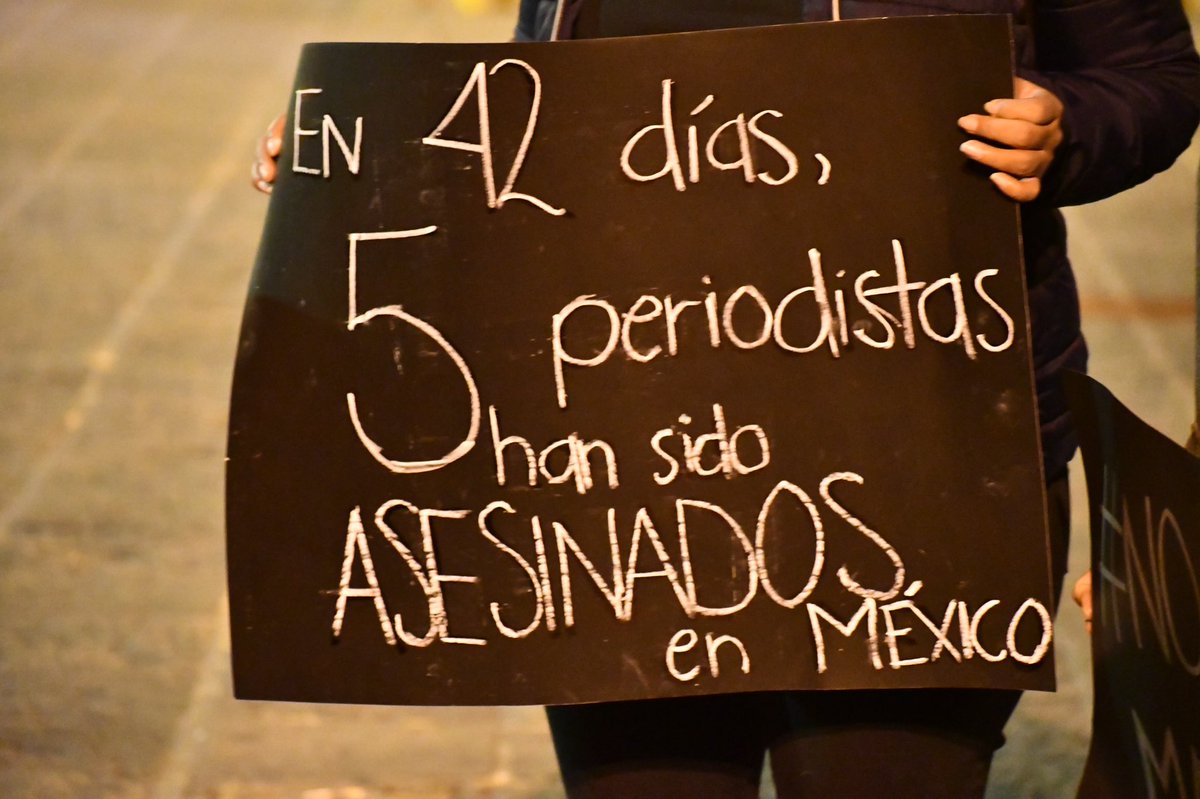 EN 42 días,
5 periodistas
han sido
ASESINADOS
en MÉXICO
#NO
M